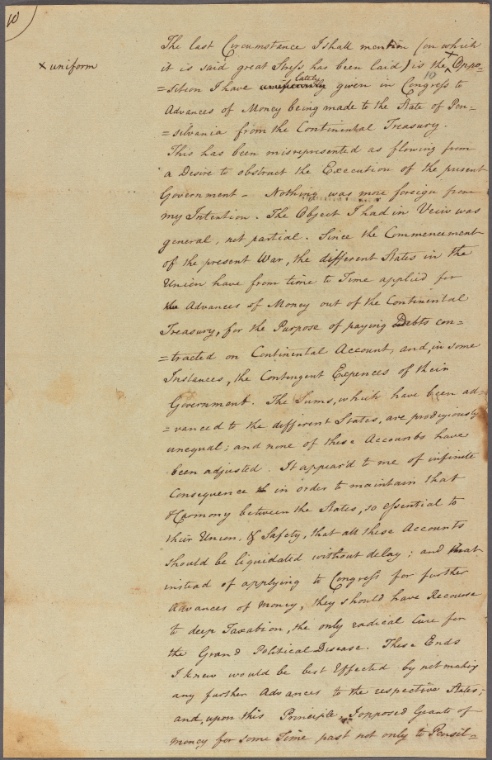 10
The last Circumstance I shall mention (on which
x uniform
it is said great Stress has been laid) is the x Oppo-
=sition I have lately given in Congress to
Advances of Money being made to the State of Pen-
=silvania from the Continental Treasury.
This has been misrepresented as flowing from
a Desire to obstruct the Execution of the present
Government - Nothing was more foreign from
my Intention. The Object I had in Veiw was
general, not partial. Since the Commencement
of the present War, the different States in the
Union have from time to Time applied for
the Advances of Money out of the Continental
Treasury, for the Purpose of paying Debts con-
=tracted on Continental Account, and, in some
Instances, the Contingent Expences of their
Government. The Sums, which have been ad
=vanced to the different States, are prodigiously
unequal; and none of these Accounts have
been adjusted. It appeard to me of infinite
Consequence in order to maintain that
Harmony between the States, so essential to
their Union & Safety, that all these Accounts
should be liquidated without delay; and that
instead of applying to Congress for further
Advances of money, they should have Recourse
to deep Taxation, the only radical Cure for
the Grand Political Disease. These Ends
I knew would be best Effected by not making
any further Advances to the respective States;
and, upon this Principle, I opposed Grants of
money for some Time past not only to Pensil=